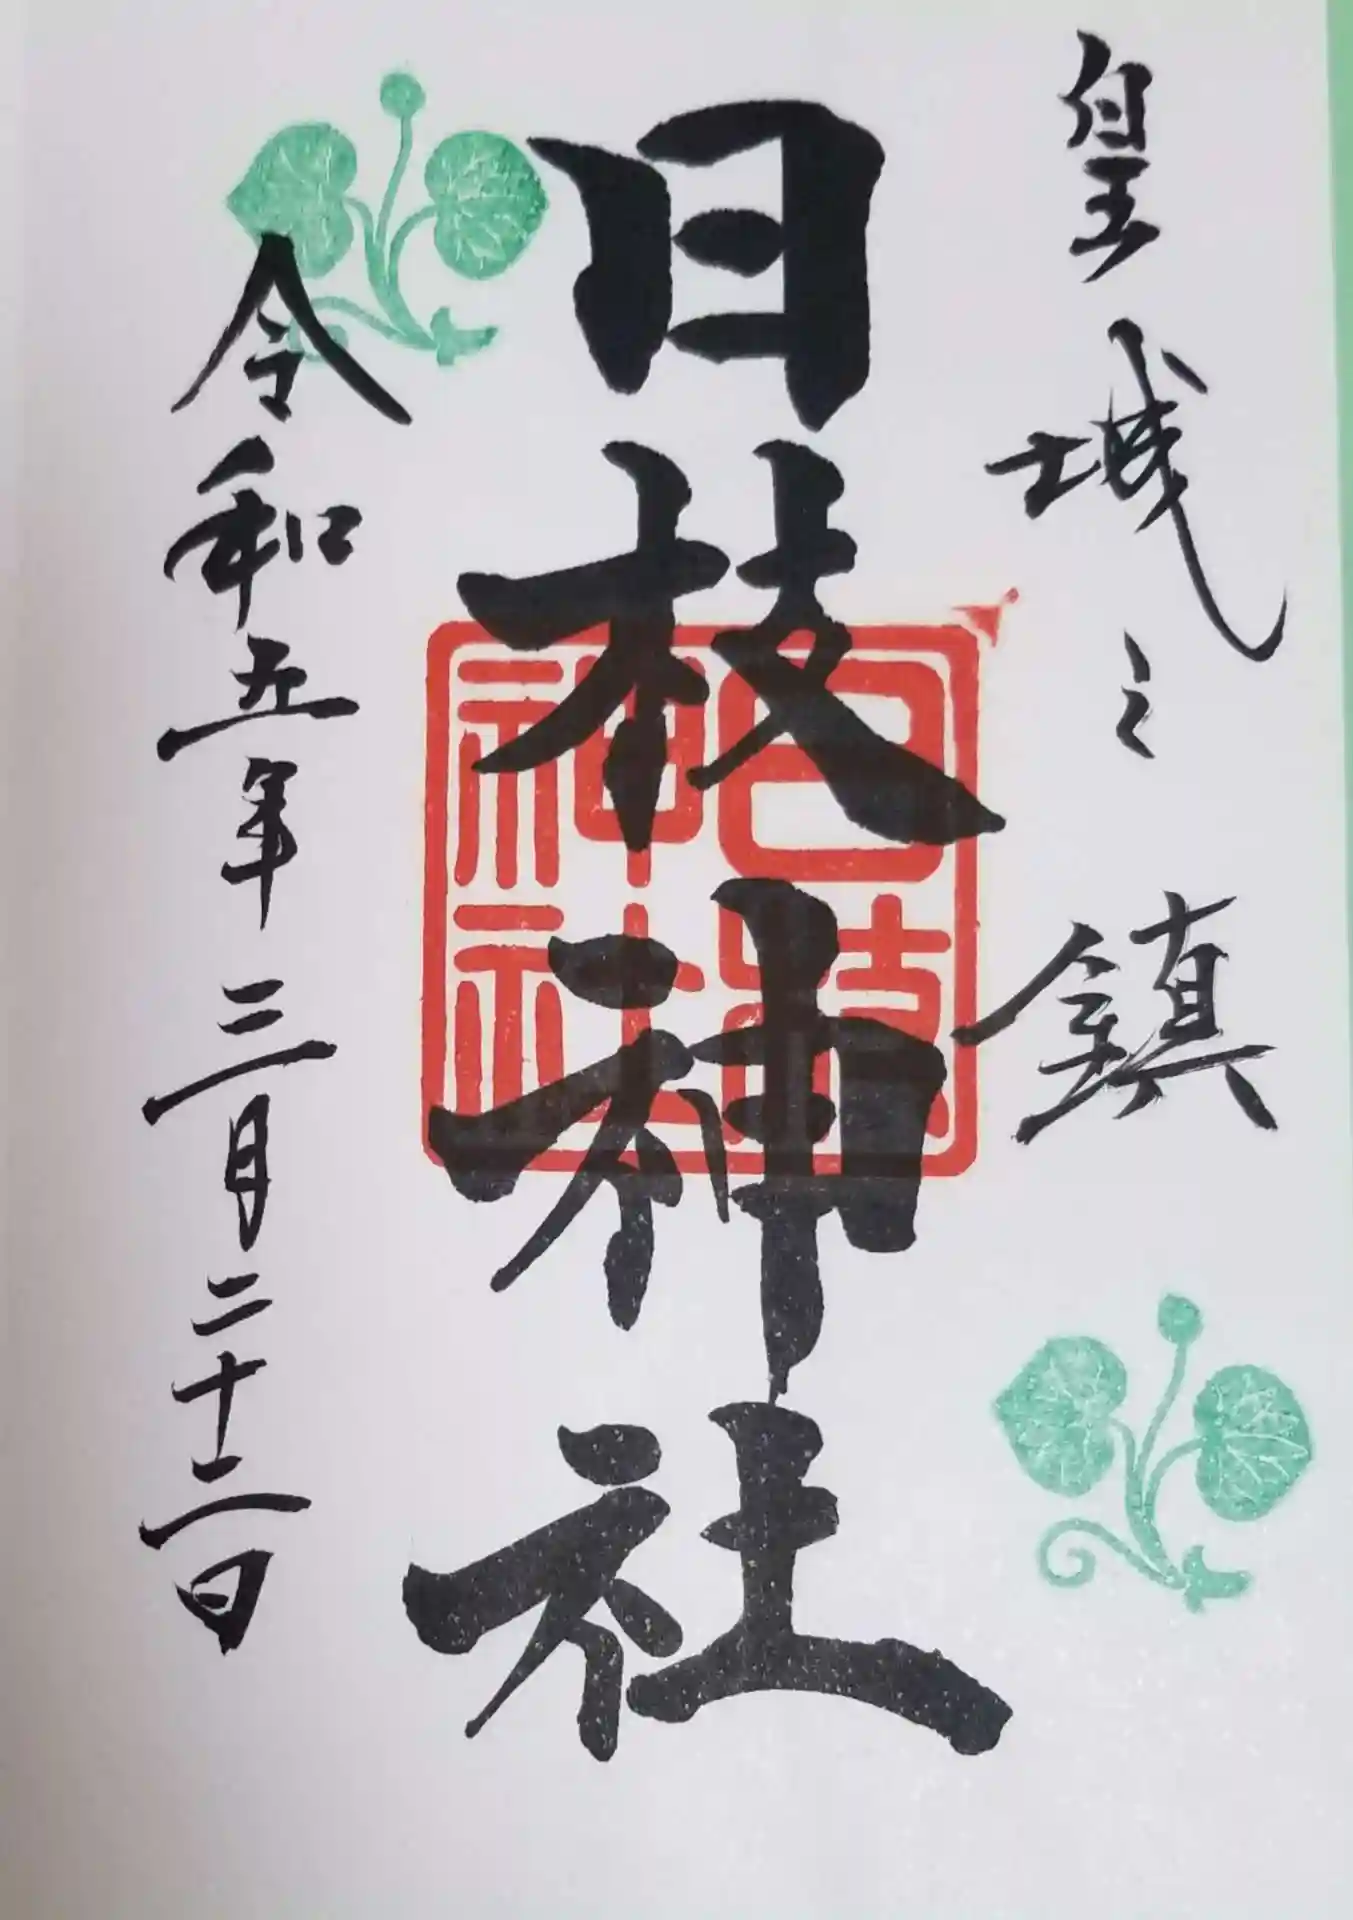 皇城之鎮
日枝神社
日枝
神社
令和五年三月二十二日